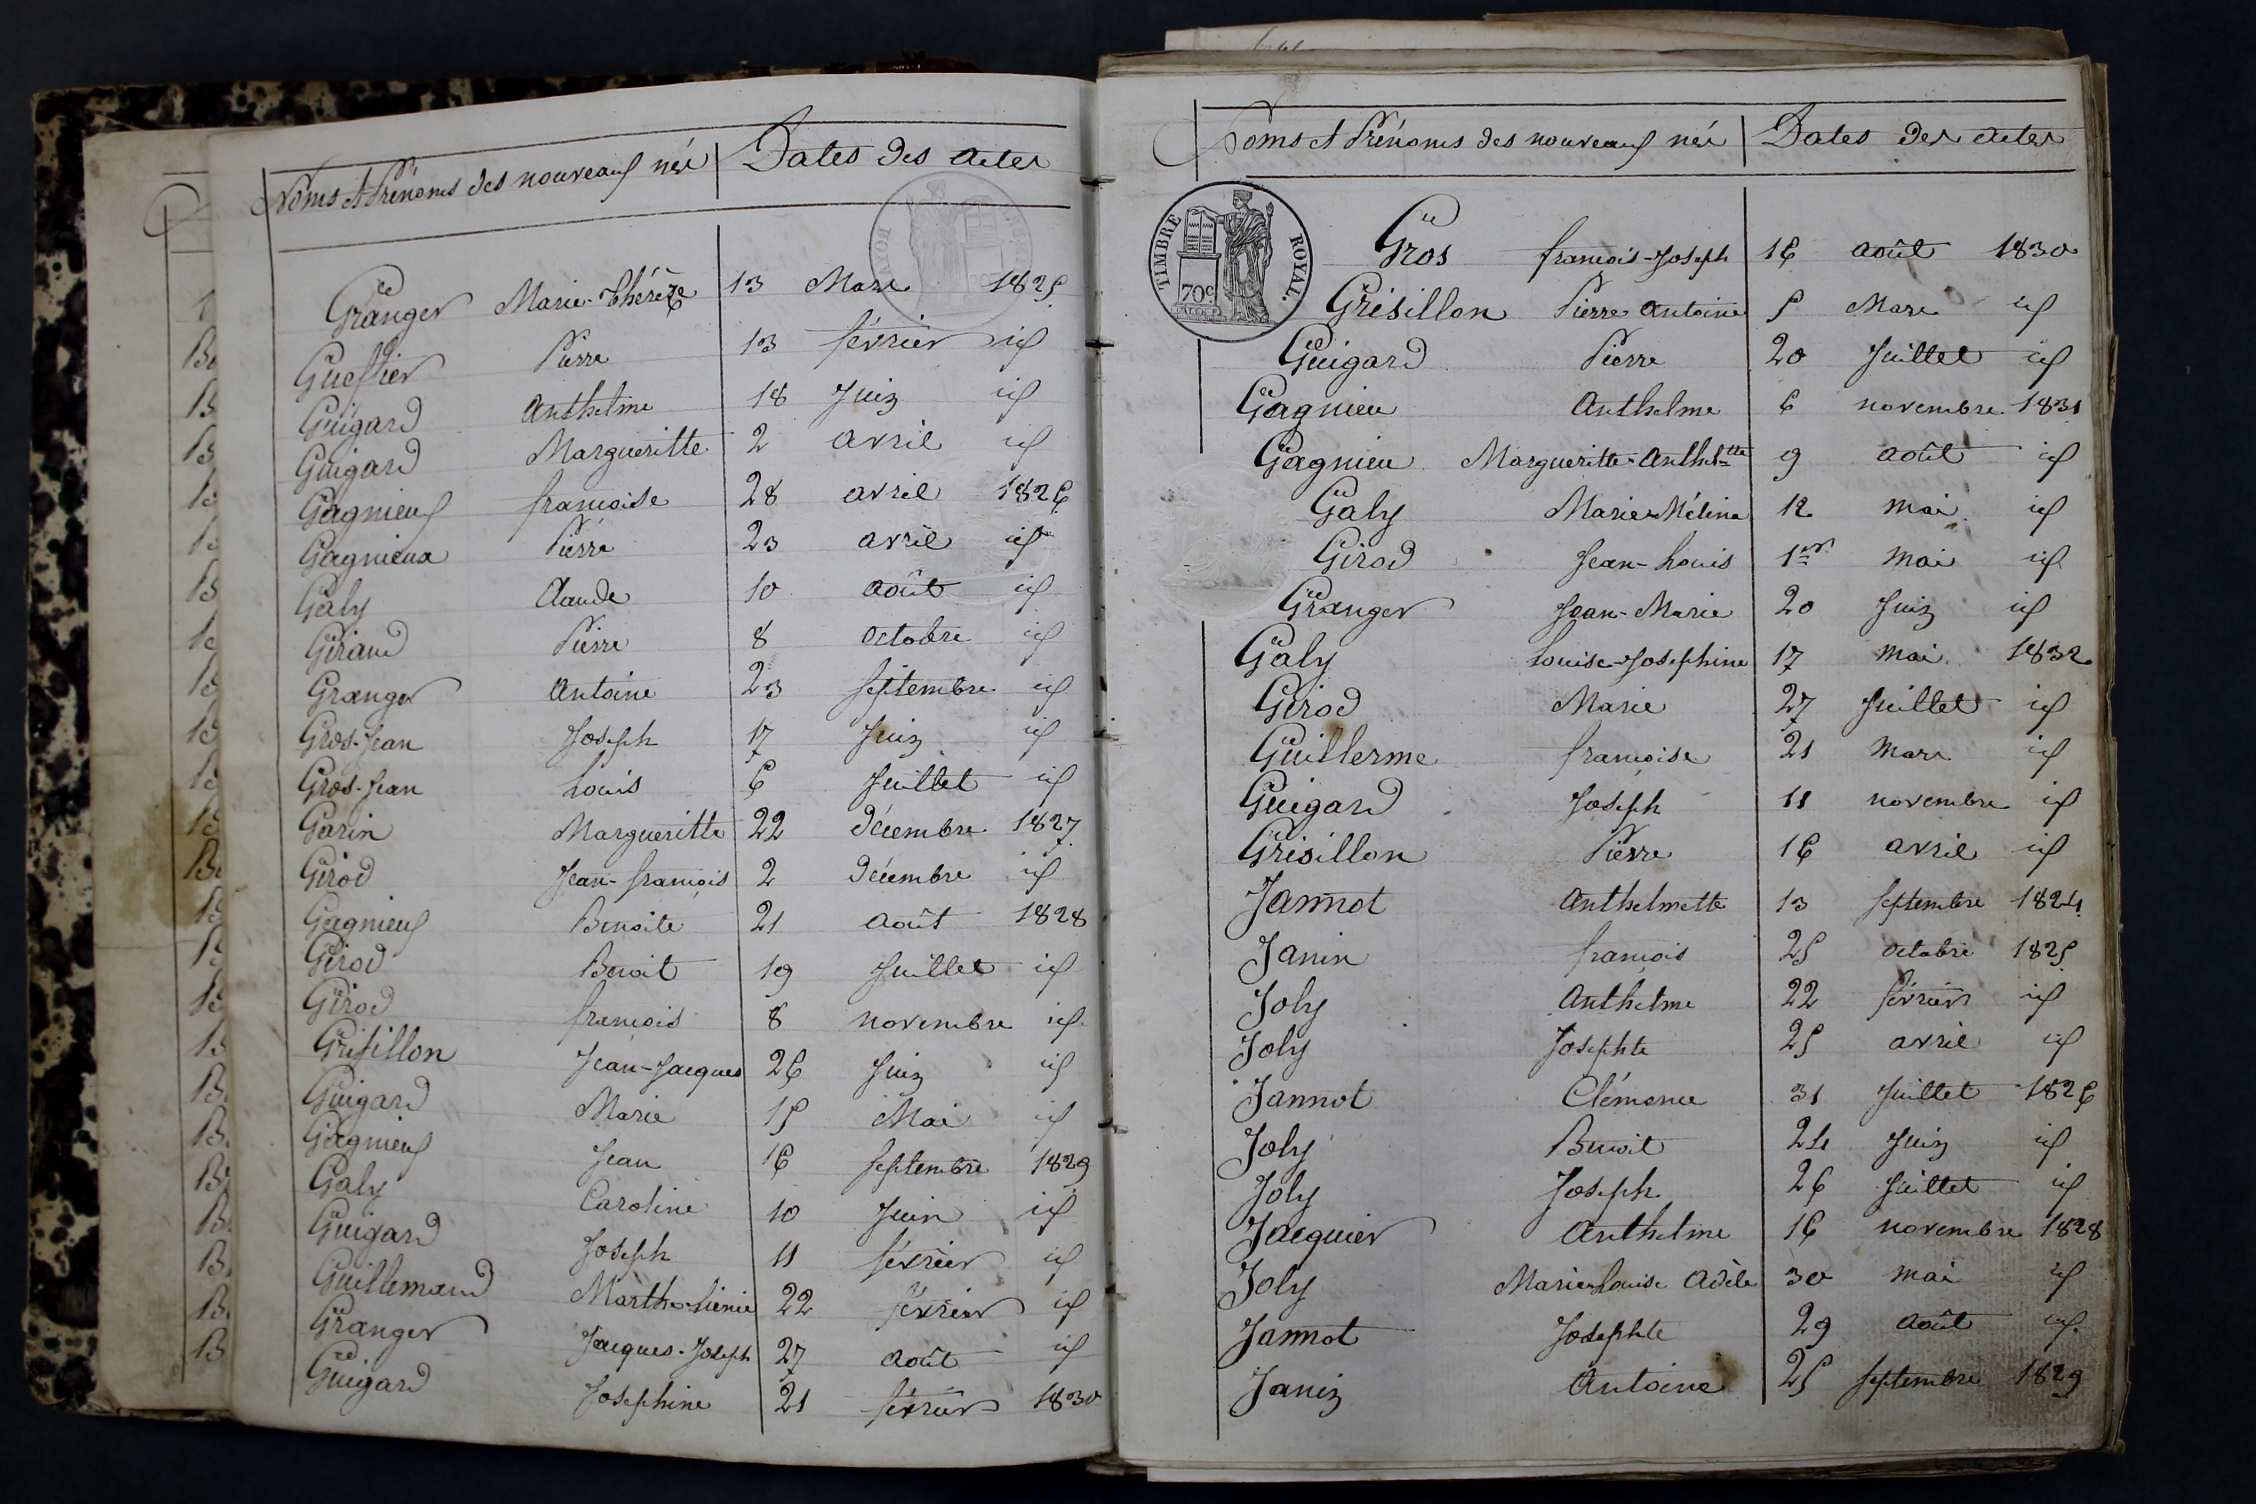 Noms et Prénoms des nouveaux nés Dates des actes
Granger Marie-Thérèze 13 Mars 1825
Gueffier Pierre 13 février id
Guigard Anthelme 18 Juin id
Guigard Margueritte 2 avril id
Gagnieux françoise 28 avril 1826
Gagnieux Pierre 23 avril id
Galy Claude 10 août id
Giraud Pierre 8 octobre id
Granger Antoine 23 septembre id
Gros-Jean Joseph 17 Juin id
Gros-Jean Louis 6 Juillet id
Garin Margueritte 22 décembre 1827
Girod Jean-françois 2 décembre id
Gagnieux Benoite 21 août 1828
Girod Benoit 19 Juillet id
Girod françois 8 novembre id
Grisillon Jean-Jacques 26 Juin id
Guigard Marie 15 Mai id
Gagnieux Jean 16 septembre 1829
Galy Caroline 10 Juin id
Guigard Joseph 11 février id
Guillemand Marthe 22 février id
Granger Jacques-Joseph 27 août id
Guigard Josephine 21 février 1830
Noms et Prénoms des nouveaux nés Dates des actes
TIMBRE ROYAL.
70c
Gros françois-Joseph 16 août 1830
Grisillon Pierre Antoine 5 Mars id
Guigard Pierre 20 Juillet id
Gagnieu Anthelme 6 novembre 1831
Gagnieu Margueritte-Antheltte 9 août id
Galy Marie-Méline 12 mai id
Girod Jean-Louis 1er mai id
Granger Jean-Marie 20 Juin id
Galy Louise-Josephine 17 mai 1832
Girod Marie 27 Juillet id
Guillerme françoise 21 mars id
Guigard Joseph 11 novembre id
Grisillon Pierre 16 avril id
Jannot Anthelmette 13 septembre 1824
Janin françois 25 octobre 1825
Joly Anthelme 22 février id
Joly Josephte 25 avril id
Jannot Clémence 31 Juillet 1826
Joly Benoit 24 Juin id
Joly Joseph 26 Juillet id
Jacquier Anthelme 16 novembre 1828
Joly Marie-Louise Adèle 30 mai id
Jannot Josephte 29 août id
Janin Antoine 25 septembre 1829